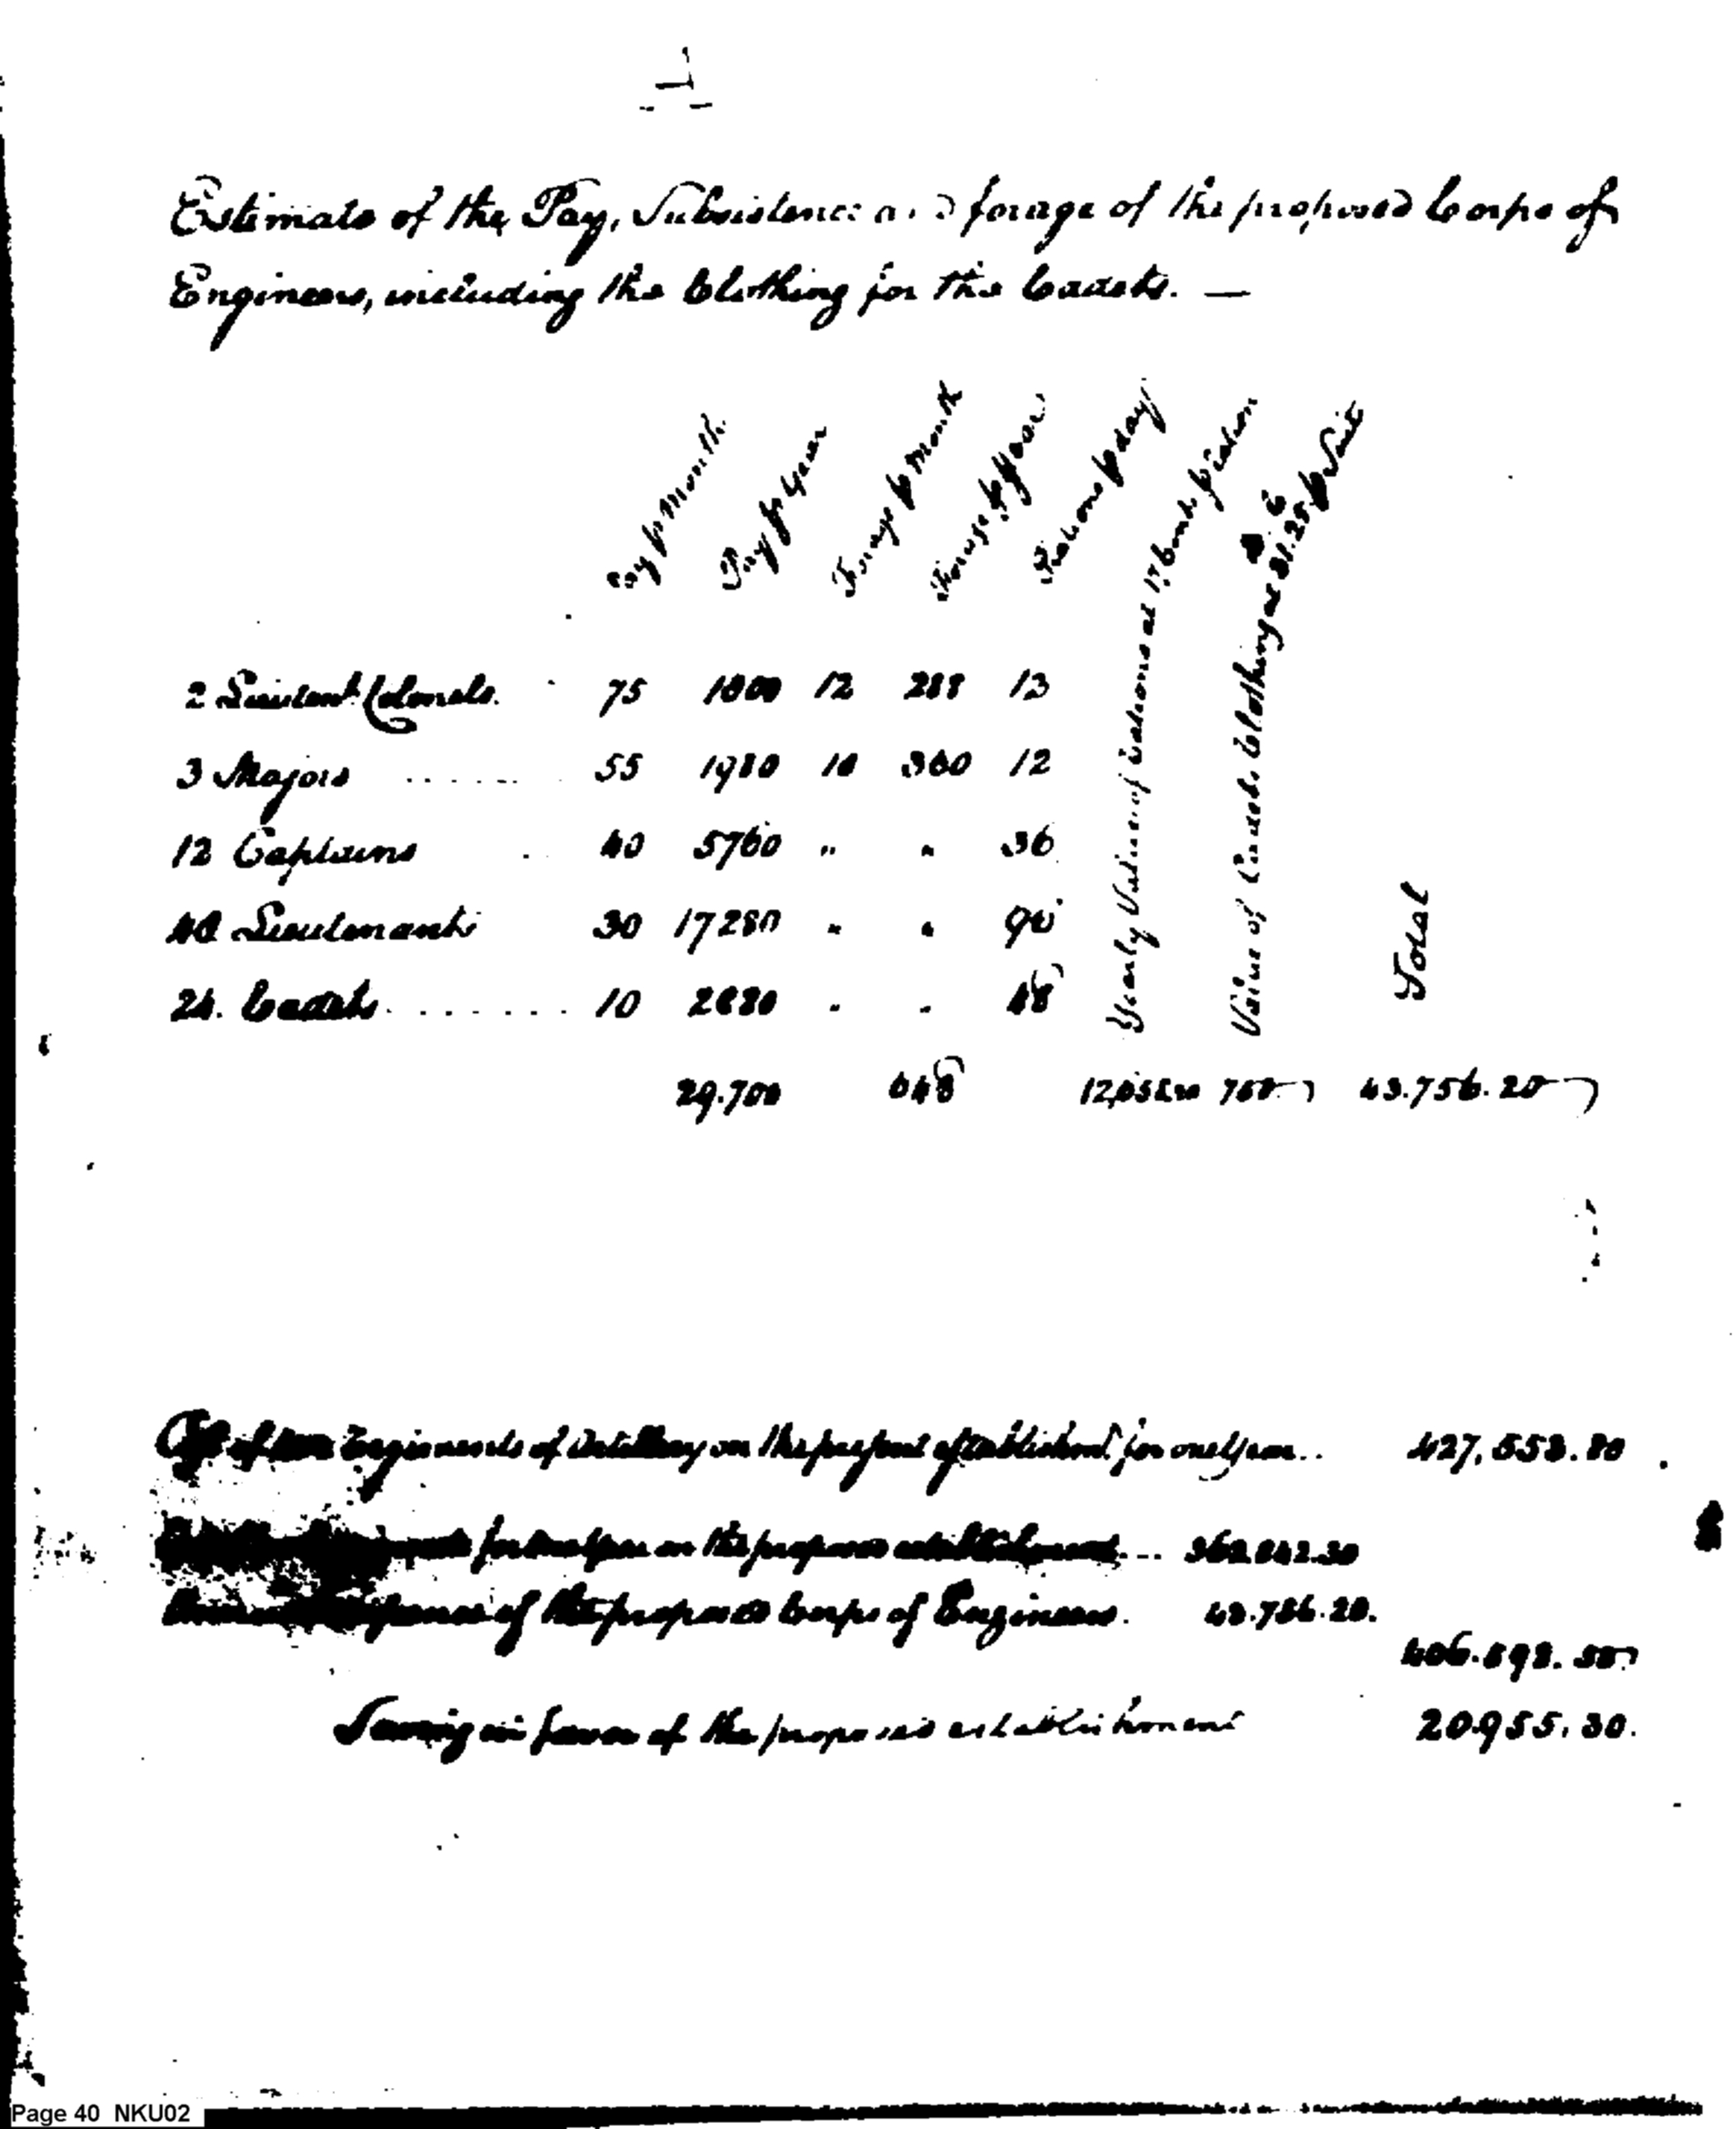 Estimate of the Pay, Subsistence and forage of the proposed Corps of
Engineers, including the Clothing for the Cadets. —
Pay p month
Pay p Year
Forage p month
Forage p Year
Rations p day
Yearly Value of Rations at 17 Cents p Ration
Value of Cadets Clothing at
Total
2 Lieutent. Colonels. 75 1800 12 288 12
3 Majors ...... 55 1980 10 360 12
12 Captains 40 5760 " " 36
48 Lieutenants 30 17280 " " 96
24. Cadets ....... 10 2880 " " 48
29.700 648 43.756.20
of four Regiments of Artillery on the present establishmt. for one Year .. 427,553.80
for one Year on the proposed establishment ...
of the proposed Corps of Engineers. 43.756.20.
406.598.50
Saving in favor of the proposed establishment 20.955.30.
Page 40 NKU02